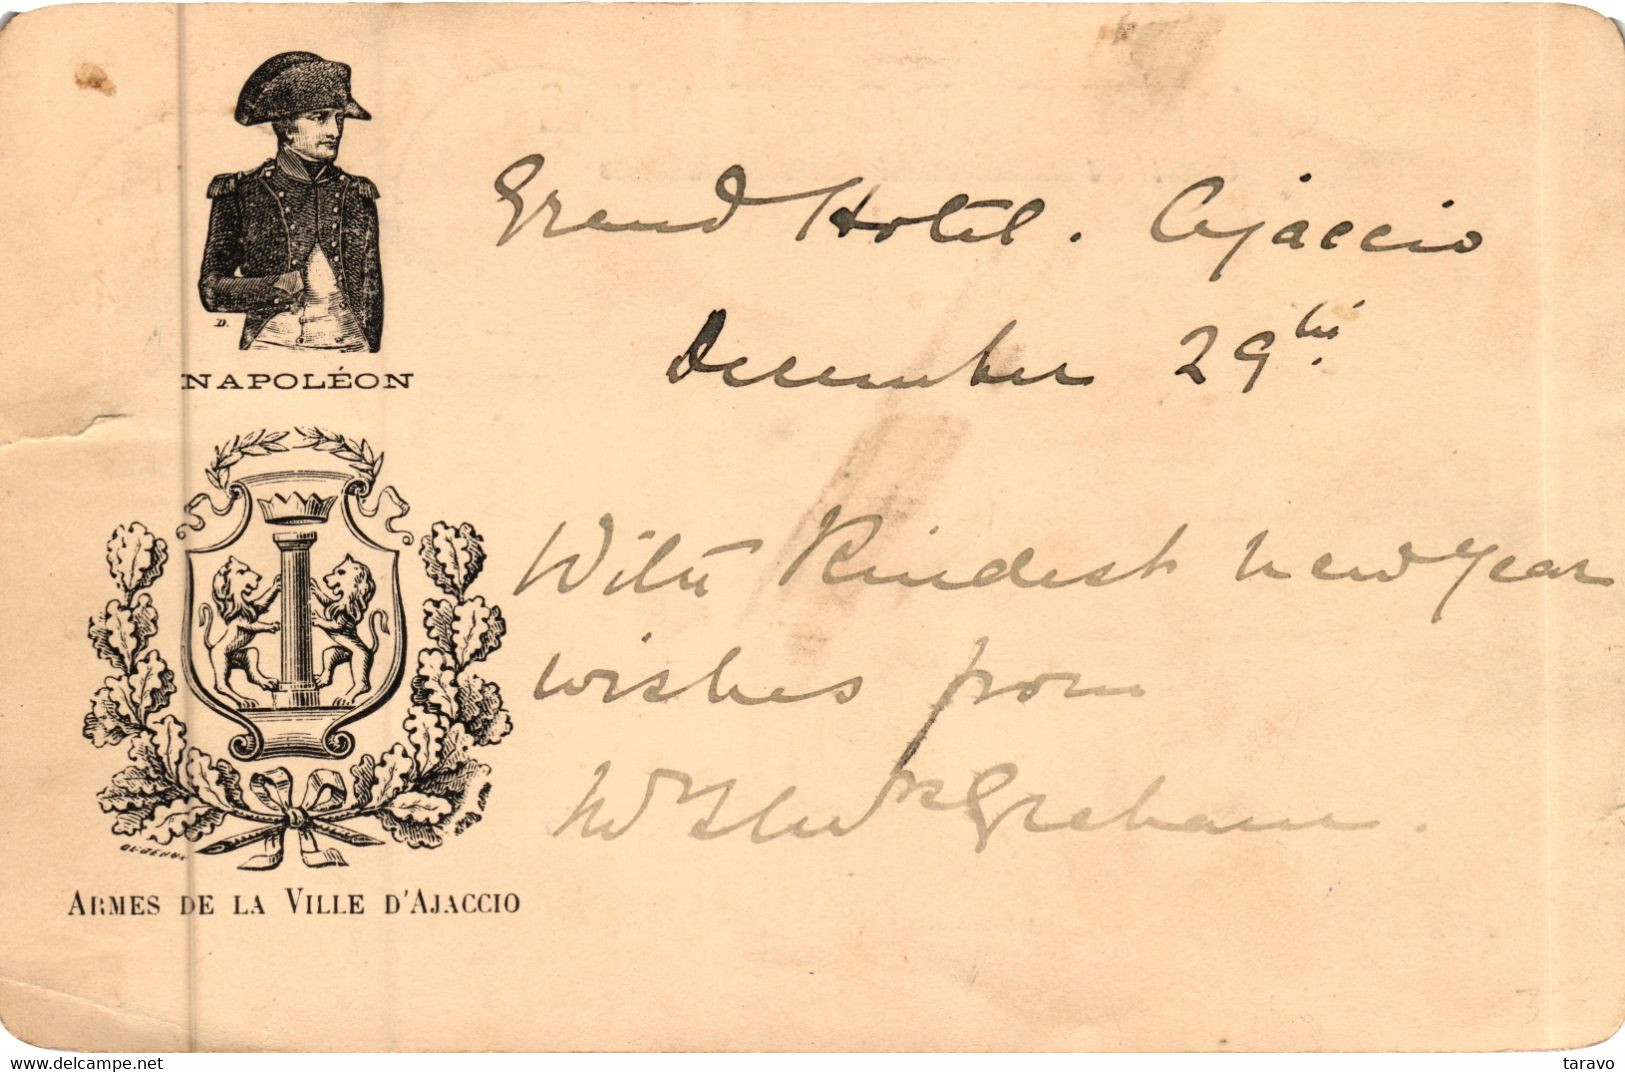 Grand Hotel. Ajaccio
December 29th
D.
NAPOLÉON
With Kindest New Year
wishes from
Graham.
ARMES DE LA VILLE D'AJACCIO
www.delcampe.net
taravo